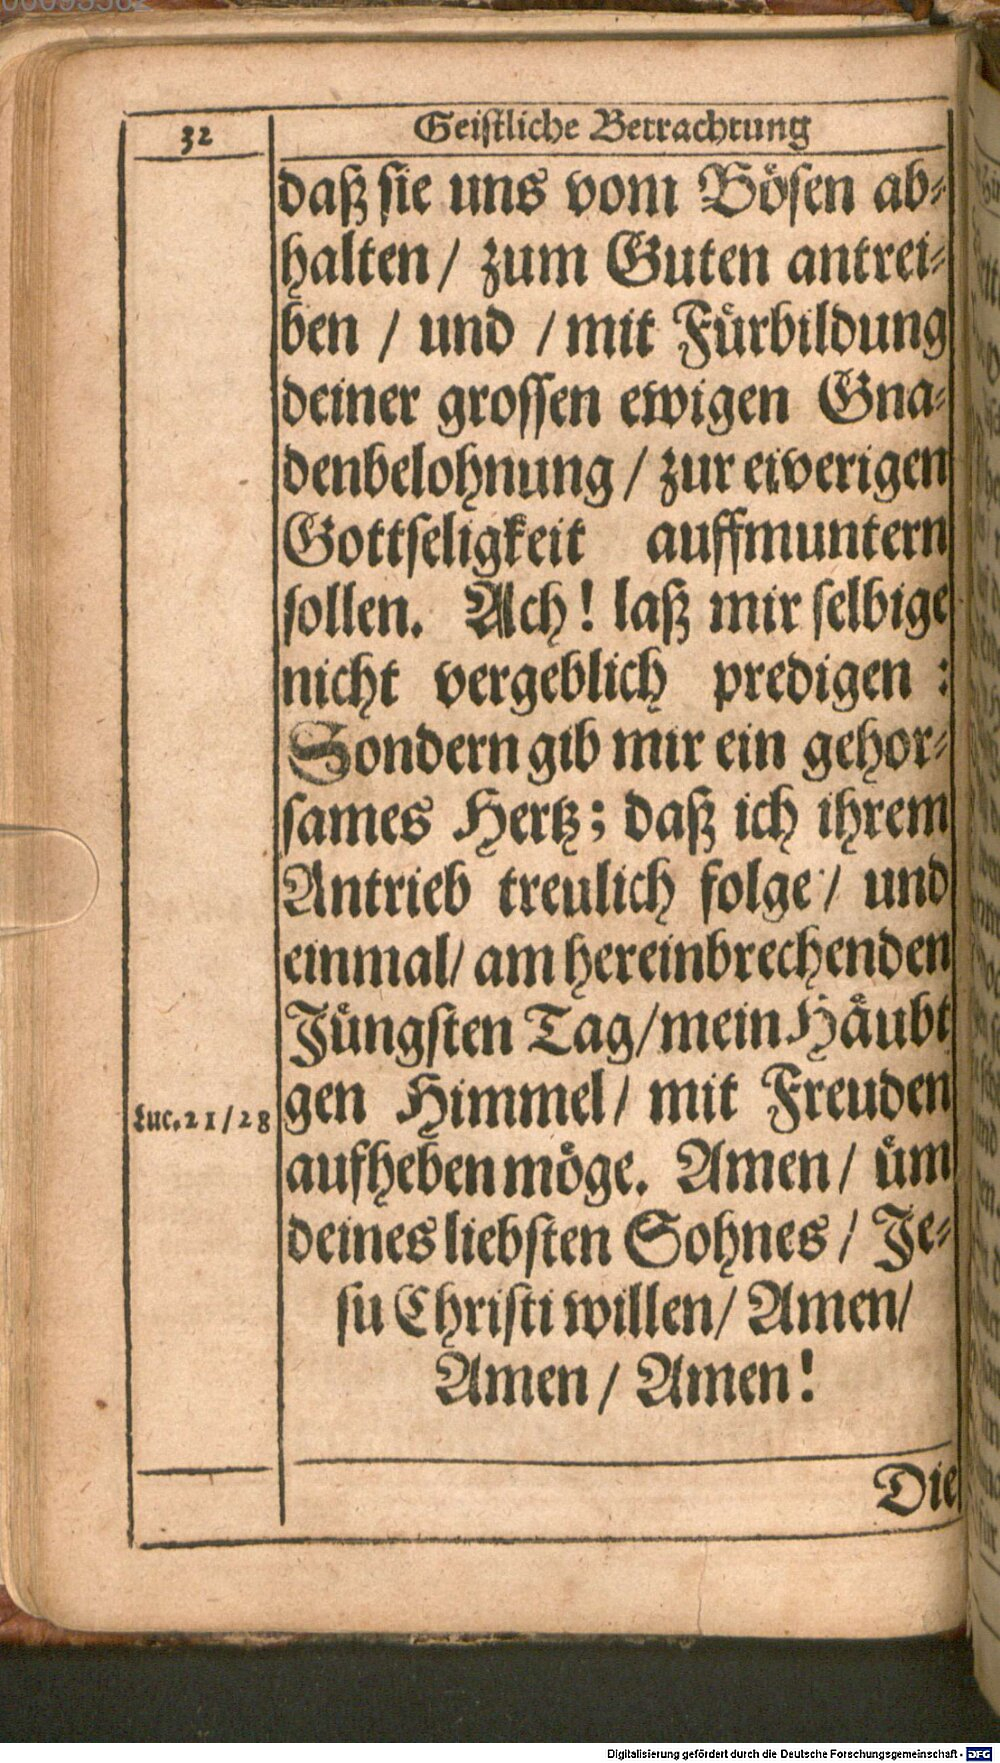 32
Geistliche Betrachtung
daß sie uns vom Bösen ab⸗
halten / zum Guten antrei⸗
ben / und / mit Fürbildung
deiner grossen ewigen Gna⸗
denbelohnung / zur eiverigen
Gottseligkeit auffmuntern
sollen. Ach! laß mir selbige
nicht vergeblich predigen :
Sondern gib mir ein gehor⸗
sames Hertz; daß ich ihrem
Antrieb treulich folge / und
einmal / am hereinbrechenden
Jüngsten Tag / mein Häubt
Luc. 21 / 28 gen Himmel / mit Freuden
aufheben möge. Amen / üm
deines liebsten Sohnes / Je⸗
su Christi willen / Amen /
Amen / Amen!
Die
Digitalisierung gefördert durch die Deutsche Forschungsgemeinschaft - DFG